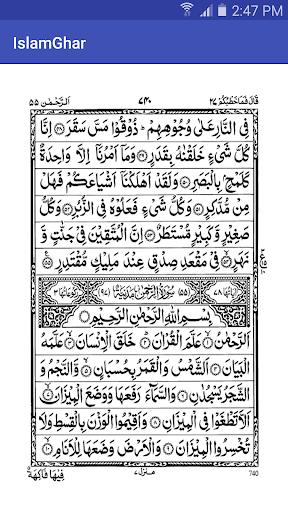 2:47 PM
IslamGhar
الرحمٰن ۵۵
۷۴۰
قال فما خطبکم ۲۷
فِي النَّارِ عَلٰى وُجُوْهِهِمْ ؕ ذُوْقُوْا مَسَّ سَقَرَ ﴿۴۸﴾ اِنَّا
كُلَّ شَيْءٍ خَلَقْنٰهُ بِقَدَرٍ ﴿۴۹﴾ وَمَاۤ اَمْرُنَاۤ اِلَّا وَاحِدَةٌ
كَلَمْحٍۭ بِالْبَصَرِ ﴿۵۰﴾ وَلَقَدْ اَهْلَكْنَاۤ اَشْيَاعَكُمْ فَهَلْ
مِنْ مُّدَّكِرٍ ﴿۵۱﴾ وَكُلُّ شَيْءٍ فَعَلُوْهُ فِي الزُّبُرِ ﴿۵۲﴾ وَكُلُّ
صَغِيْرٍ وَّكَبِيْرٍ مُّسْتَطَرٌ ﴿۵۳﴾ اِنَّ الْمُتَّقِيْنَ فِيْ جَنّٰتٍ وَّ
نَهَرٍ ﴿۵۴﴾ فِيْ مَقْعَدِ صِدْقٍ عِنْدَ مَلِيْكٍ مُّقْتَدِرٍ ﴿۵۵﴾
اٰياتها ۷۸ (۵۵) سُوْرَةُ الرَّحْمٰنِ مَدَنِيَّةٌ (۹۷) رکوعاتها ۳
بِسْمِ اللّٰهِ الرَّحْمٰنِ الرَّحِيْمِ
اَلرَّحْمٰنُ ﴿۱﴾ عَلَّمَ الْقُرْاٰنَ ﴿۲﴾ خَلَقَ الْاِنْسَانَ ﴿۳﴾ عَلَّمَهُ
الْبَيَانَ ﴿۴﴾ اَلشَّمْسُ وَالْقَمَرُ بِحُسْبَانٍ ﴿۵﴾ وَّالنَّجْمُ وَ
الشَّجَرُ يَسْجُدٰنِ ﴿۶﴾ وَالسَّمَآءَ رَفَعَهَا وَوَضَعَ الْمِيْزَانَ ﴿۷﴾
اَلَّا تَطْغَوْا فِي الْمِيْزَانِ ﴿۸﴾ وَاَقِيْمُوا الْوَزْنَ بِالْقِسْطِ وَلَا
تُخْسِرُوا الْمِيْزَانَ ﴿۹﴾ وَالْاَرْضَ وَضَعَهَا لِلْاَنَامِ ﴿۱۰﴾
منزل ۷
فِيْهَا فَاكِهَةٌ
740